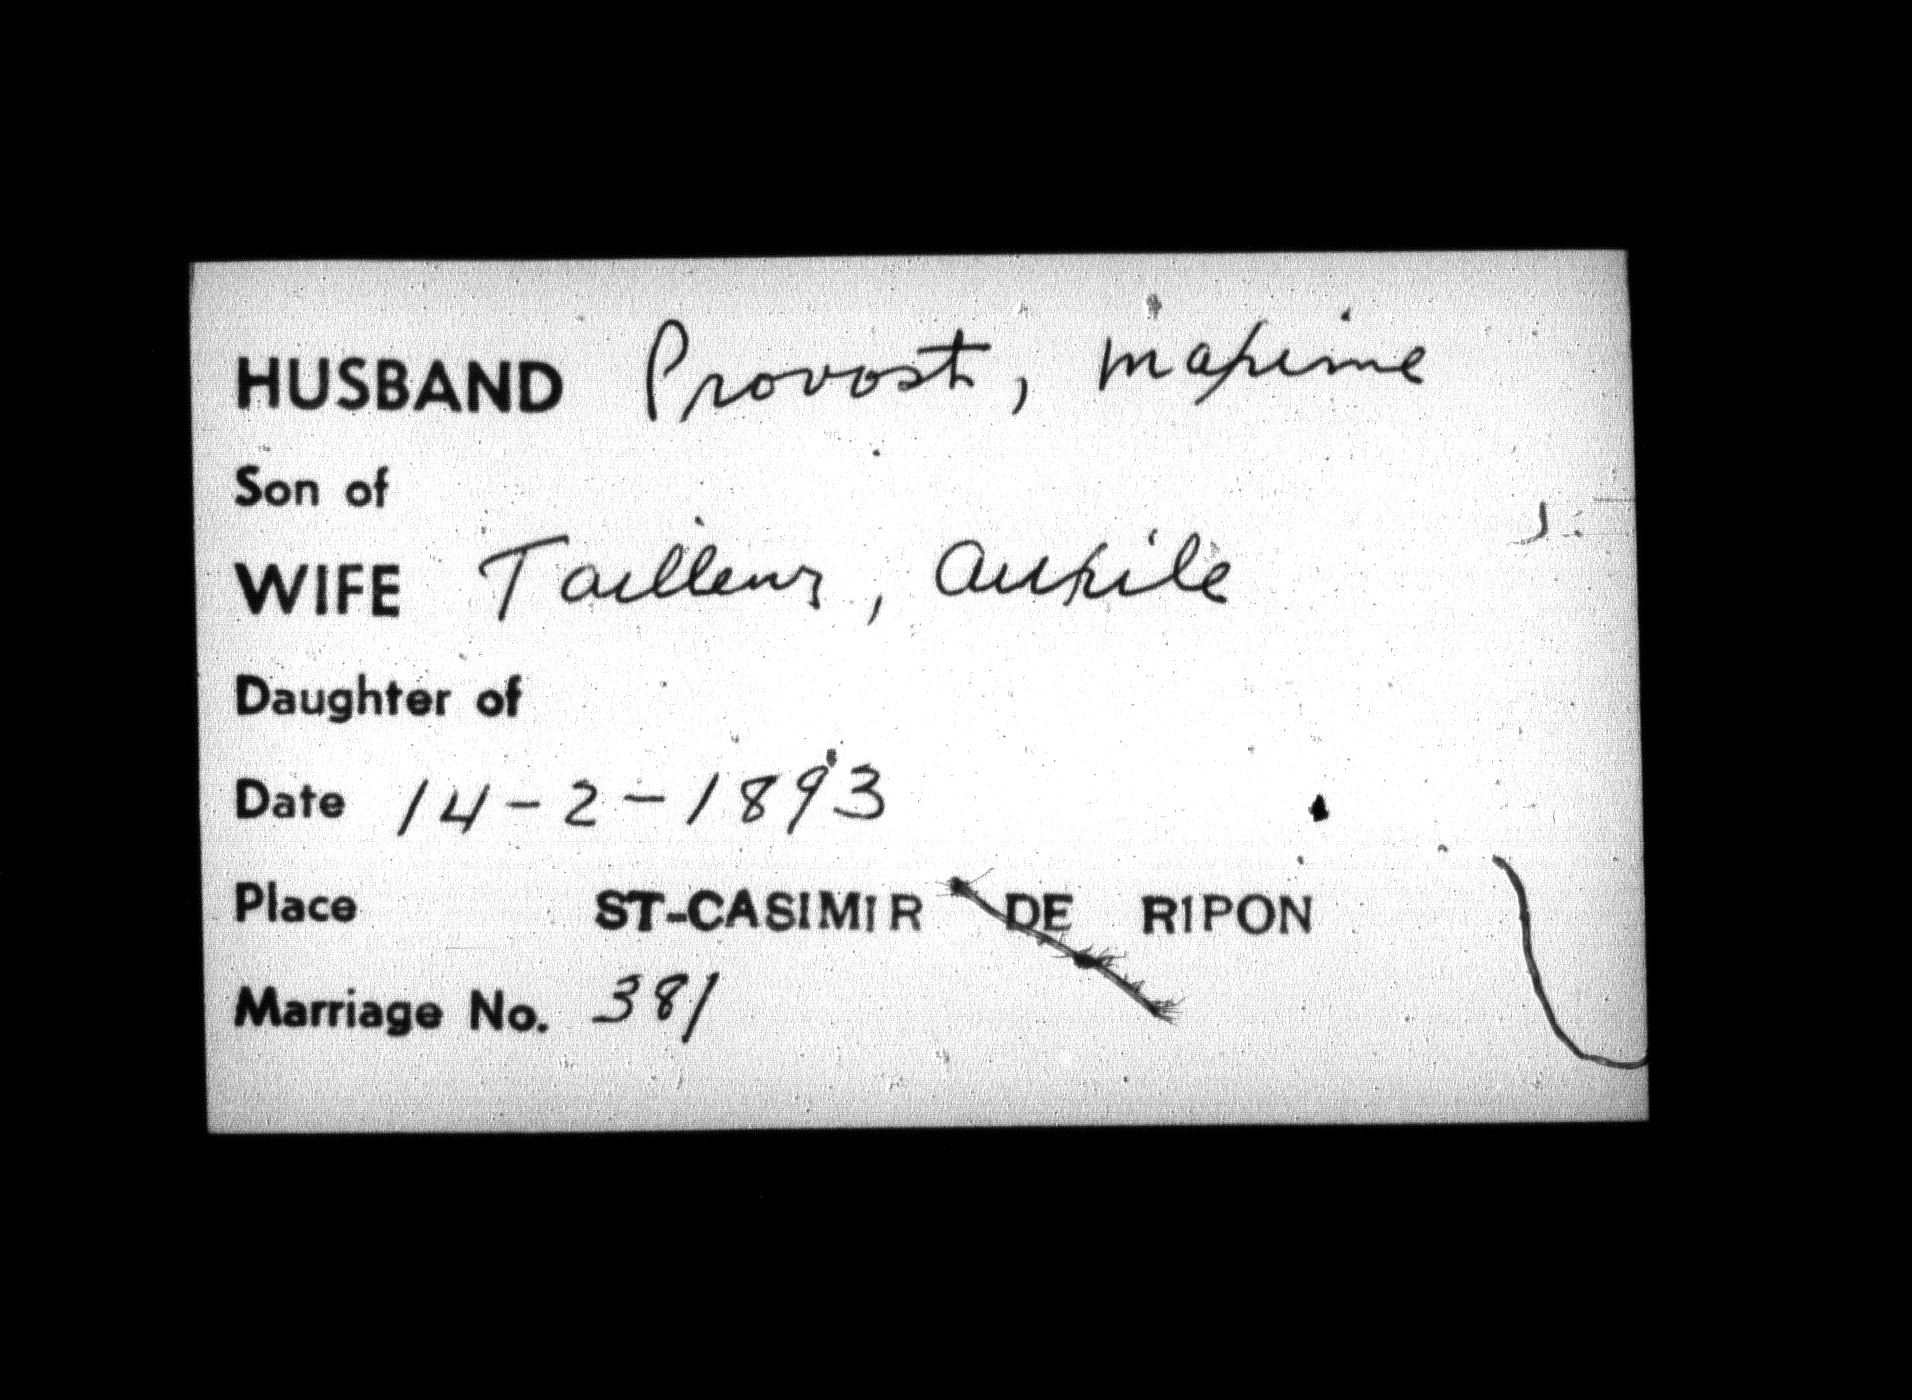 HUSBAND Provost, Maxime
Son of
WIFE Tailleur, Auxile
Daughter of
Date 14-2-1893
Place ST-CASIMIR DE RIPON
Marriage No. 381